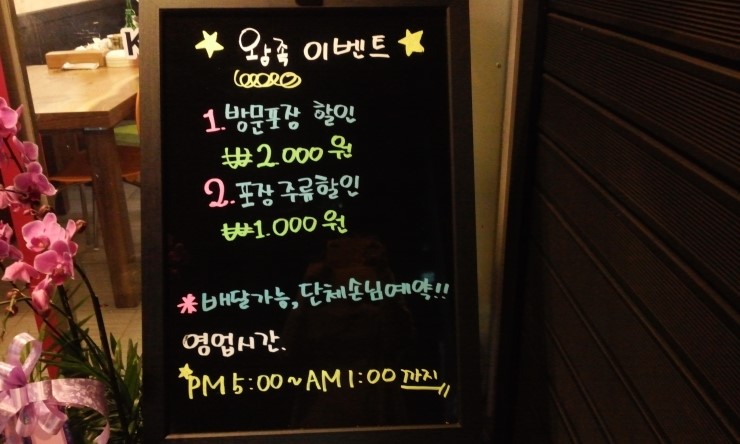 K
☆ 왕족 이벤트 ☆
1. 방문포장 할인
₩2.000원
2. 포장주류할인
₩1.000원
* 배달가능, 단체손님예약!!
영업시간.
☆PM 5:00~AM 1:00 까지